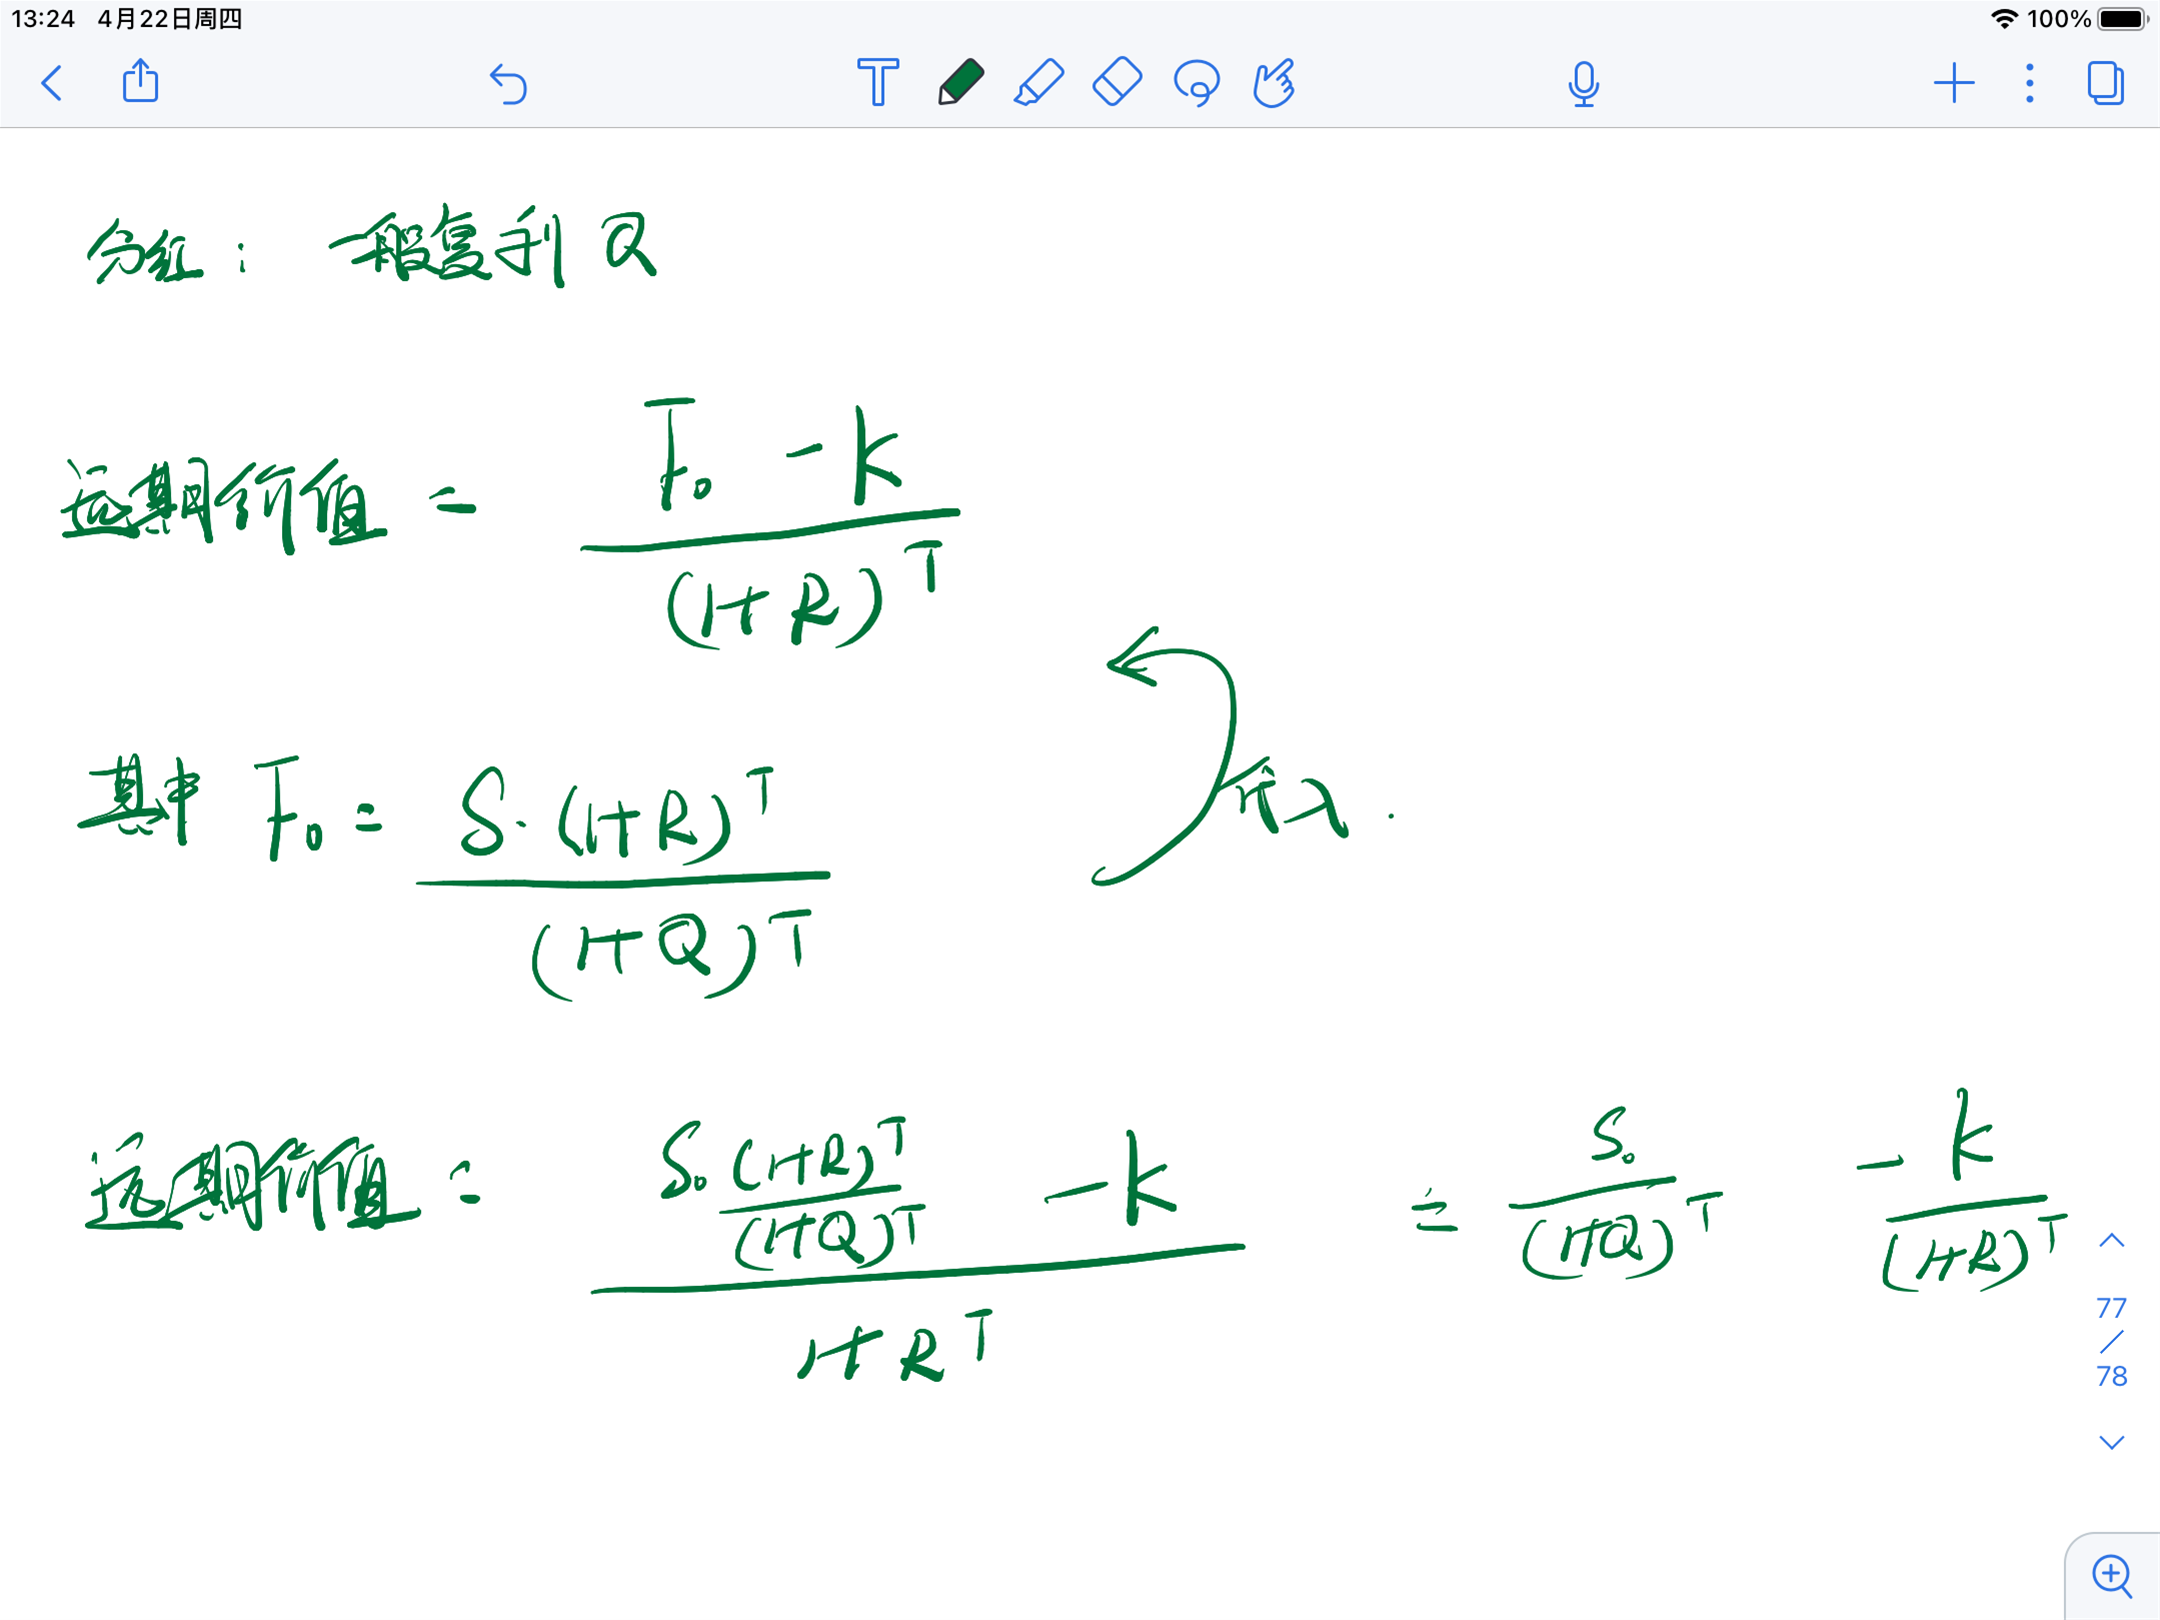 13:24 4月22日周四 100%
T
分红: 一般复利 Q
远期价值 = \frac{F_0 - k}{(1+R)^T}
其中 F_0 = \frac{S \cdot (1+R)^T}{(1+Q)^T}
代入.
远期价值 = \frac{S_0 \frac{(1+R)^T}{(1+Q)^T} - k}{1+R^T} = \frac{S_0}{(1+Q)^T} - \frac{k}{(1+R)^T}
77
/
78